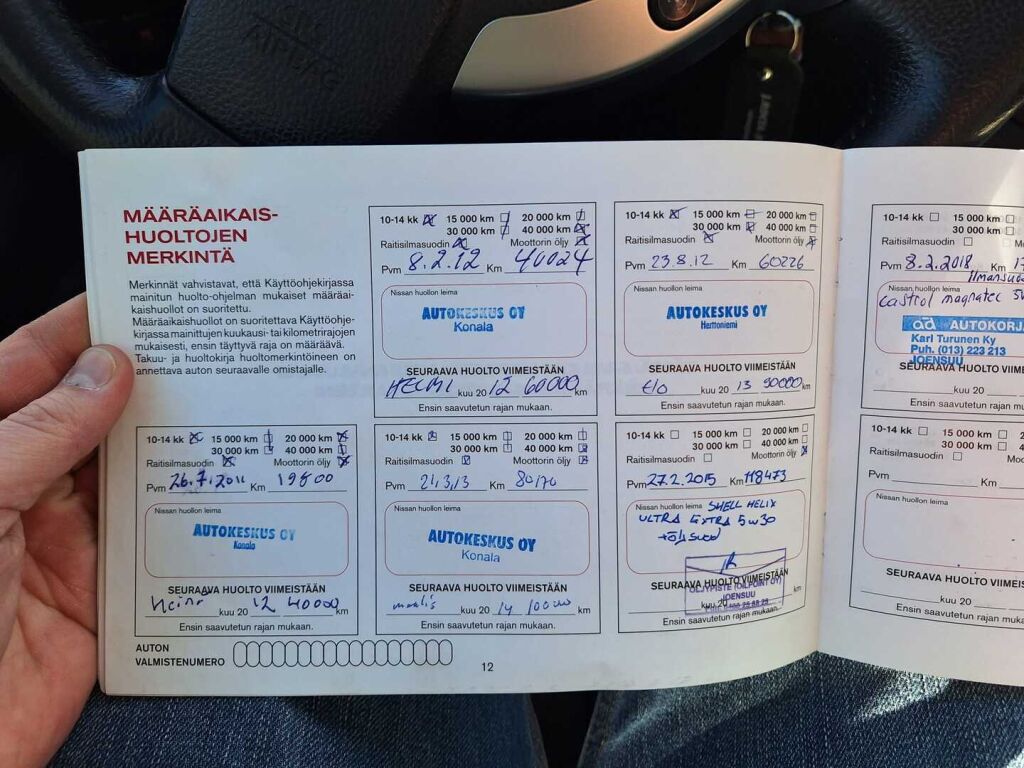 MÄÄRÄAIKAIS-
HUOLTOJEN
MERKINTÄ
Merkinnät vahvistavat, että Käyttöohjekirjassa
mainitun huolto-ohjelman mukaiset määräai-
kaishuollot on suoritettu.
Määräaikaishuollot on suoritettava Käyttöohje-
kirjassa mainittujen kuukausi- tai kilometrirajojen
mukaisesti, ensin täyttyvä raja on määräävä.
Takuu- ja huoltokirja huoltomerkintöineen on
annettava auton seuraavalle omistajalle.
10-14 kk 15 000 km 20 000 km
30 000 km 40 000 km
Raitisilmasuodin Moottorin öljy
Pvm 8.2.12 Km 40024
Nissan huollon leima
AUTOKESKUS OY
Konala
SEURAAVA HUOLTO VIIMEISTÄÄN
HELMI kuu 20 12 60000 km
Ensin saavutetun rajan mukaan.
10-14 kk 15 000 km 20 000 km
30 000 km 40 000 km
Raitisilmasuodin Moottorin öljy
Pvm 23.8.12 Km 60226
Nissan huollon leima
AUTOKESKUS OY
Herttoniemi
SEURAAVA HUOLTO VIIMEISTÄÄN
Elo kuu 20 13 90000 km
Ensin saavutetun rajan mukaan.
10-14 kk 15 000 km
30 000 km
Raitisilmasuodin
Pvm 8.2.2018 Km
Nissan huollon leima
Castrol magnatec
ad AUTOKORJA
Kari Turunen Ky
Puh. (013) 223 213
JOENSUU
SEURAAVA HUOLTO VIIMEISTÄÄN
kuu 20
Ensin saavutetun rajan mukaan.
10-14 kk 15 000 km 20 000 km
30 000 km 40 000 km
Raitisilmasuodin Moottorin öljy
Pvm 26.7.2011 Km 19800
Nissan huollon leima
AUTOKESKUS OY
Konala
SEURAAVA HUOLTO VIIMEISTÄÄN
Heinä kuu 20 12 40000 km
Ensin saavutetun rajan mukaan.
10-14 kk 15 000 km 20 000 km
30 000 km 40 000 km
Raitisilmasuodin Moottorin öljy
Pvm 21.3.13 Km 80170
Nissan huollon leima
AUTOKESKUS OY
Konala
SEURAAVA HUOLTO VIIMEISTÄÄN
maalis kuu 20 14 100000 km
Ensin saavutetun rajan mukaan.
10-14 kk 15 000 km 20 000 km
30 000 km 40 000 km
Raitisilmasuodin Moottorin öljy
Pvm 27.2.2015 Km 118473
Nissan huollon leima SHELL HELIX
ULTRA EXTRA 5w30
SEURAAVA HUOLTO VIIMEISTÄÄN
ÖLJYPISTE (OILPOINT OY)
JOENSUU
kuu 20 km
Ensin saavutetun rajan mukaan.
10-14 kk 15 000 km
30 000 km
Raitisilmasuodin
Pvm Km
Nissan huollon leima
SEURAAVA HUOLTO VIIMEISTÄÄN
kuu 20
Ensin saavutetun rajan mukaan.
AUTON
VALMISTENUMERO
12
AIRBAG